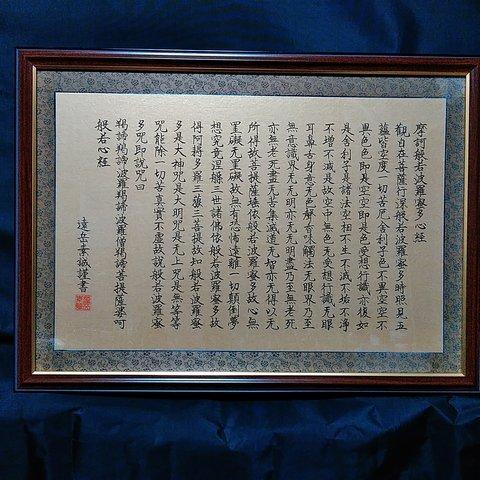 摩訶般若波羅蜜多心経
觀自在菩薩行深般若波羅蜜多時照見五
蘊皆空度一切苦厄舍利子色不異空空不
異色色即是空空即是色受想行識亦復如
是舍利子是諸法空相不生不滅不垢不淨
不增不減是故空中無色无受想行識无眼
耳鼻舌身意无色聲香味觸法无眼界乃至
無意識界无无明亦无无明盡乃至無老死
亦無老死盡无苦集滅道无智亦无得以无
所得故菩提薩埵依般若波羅蜜多故心無
罣礙无罣礙故無有恐怖遠離一切顛倒夢
想究竟涅槃三世諸佛依般若波羅蜜多故
得阿耨多羅三藐三菩提故知般若波羅蜜
多是大神咒是大明咒是无上咒是無等等
咒能除一切苦真實不虛故說般若波羅蜜
多咒即說咒曰
羯諦羯諦波羅羯諦波羅僧羯諦菩提薩婆呵
般若心経
謹書